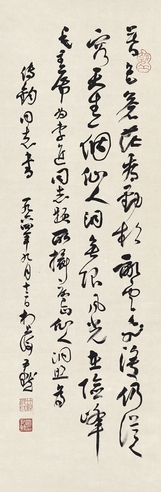 暮色苍茫看劲松乱云飞渡仍从
容天生一个仙人洞无限风光在险峰
毛主席为李进同志题所摄庐山仙人洞照
同志书 一九六四年九月十